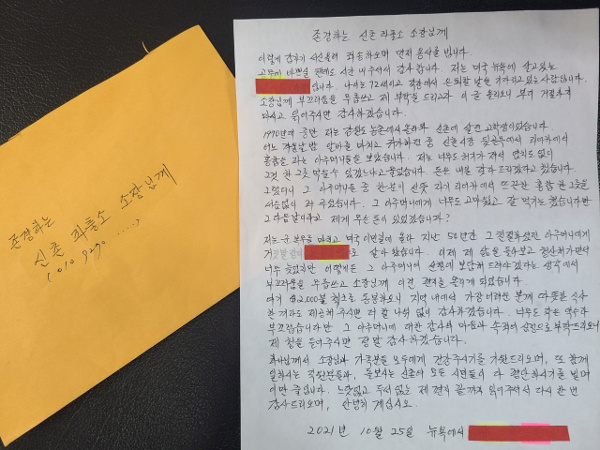 존경하는 신촌 파출소 소장님께
(010 9290 .....)
존경하는 신촌 파출소 소장님께
이렇게 갑자기 서신을 올려 죄송하오며 먼저 용서를 빕니다.
바쁘실 텐데도 시간 내주셔서 감사합니다. 저는 미국 뉴욕에 살고있는
입니다. 나이는 72세이고 직장에서 은퇴할 날을 기다리고 있는 사람입니다.
소장님께 부끄러움을 무릅쓰고 제 부탁을 드리고자 이 글을 올리오니 부디
읽어주시면 감사하겠습니다.
1970년대 중반 저는 강원도 농촌에서 올라와 신촌에 살던 고학생이었습니다.
어느 겨울날 밤 알바를 마치고 귀가하던 중 신촌시장 뒷골목에서 리어카에서
홍합을 파는 아주머니들을 보았습니다. 저는 너무도 허기가 져서 염치도 없이
그것 한 그릇 먹을 수 있겠느냐고 물었습니다. 돈은 내일 갖다 드리겠다고 했습니다.
그랬더니 그 아주머니들 중 한분이 선뜻 자기 리어카에서 뜨끈한 홍합 한 그릇을
서슴없이 퍼 주셨습니다. 그 아주머니에게 너무도 고마웠고 잘 먹기는 했습니다만
그 다음날이라고 제게 무슨 돈이 있었겠습니까?
저는 군 복무를 마치고 미국 이민길에 올라 지난 50년간 그 친절하셨던 아주머니에게
거짓말쟁이 로 살아 왔습니다. 이제 제 삶을 돌아보고 청산해가면서
너무 늦었지만 어떻게든 그 아주머니의 선행에 보답해 드려야겠다는 생각에서
부끄러움을 무릅쓰고 소장님께 이런 편지를 올리게 되었습니다.
여기 $2,000불 첵크로 동봉하오니 지역 내에서 가장 어려운 분께 따뜻한 식사
한끼라도 제공해 주시면 더 할 나위 없이 감사하겠습니다. 너무도 작은 액수라
부끄럽습니다만 그 아주머니에 대한 감사의 마음과 속죄의 심정으로 부탁드리오니
제 청을 들어주시면 정말 감사하겠습니다.
하나님께서 소장님과 가족분들 모두에게 건강주시기를 기원드리오며, 또 함께
일하시는 직원분들과, 돌보시는 신촌의 모든 시민들이 다 평안하시기를 빌며
이만 줄입니다. 느닷없고 두서 없는 제 편지 끝까지 읽어주셔서 다시 한 번
감사드리오며, 안녕히 계십시오.
2021년 10월 25일 뉴욕에서